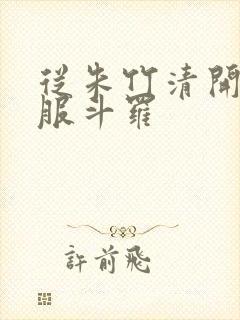 從朱竹清開
服斗羅
許前飛